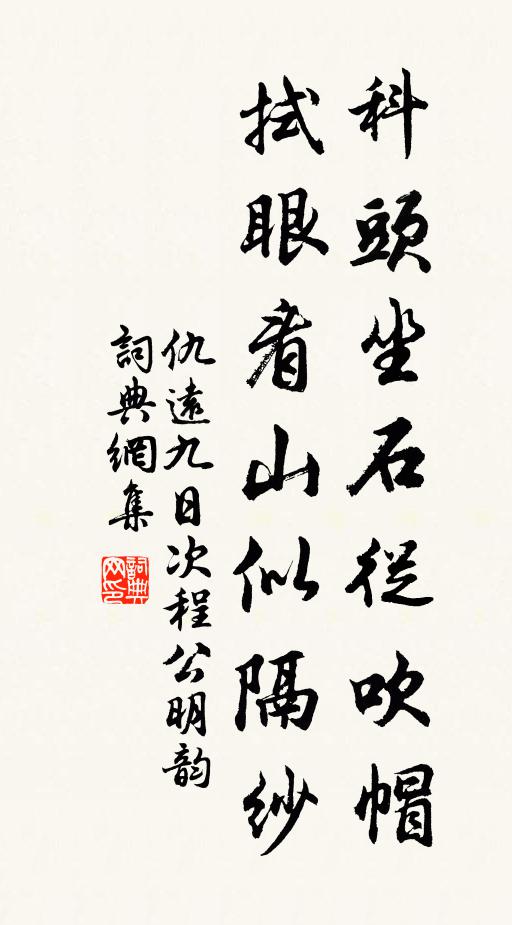 科頭坐石從吹帽
拭眼看山似隔紗
仇遠九日次程公明韵
詞典網集
詞典网印